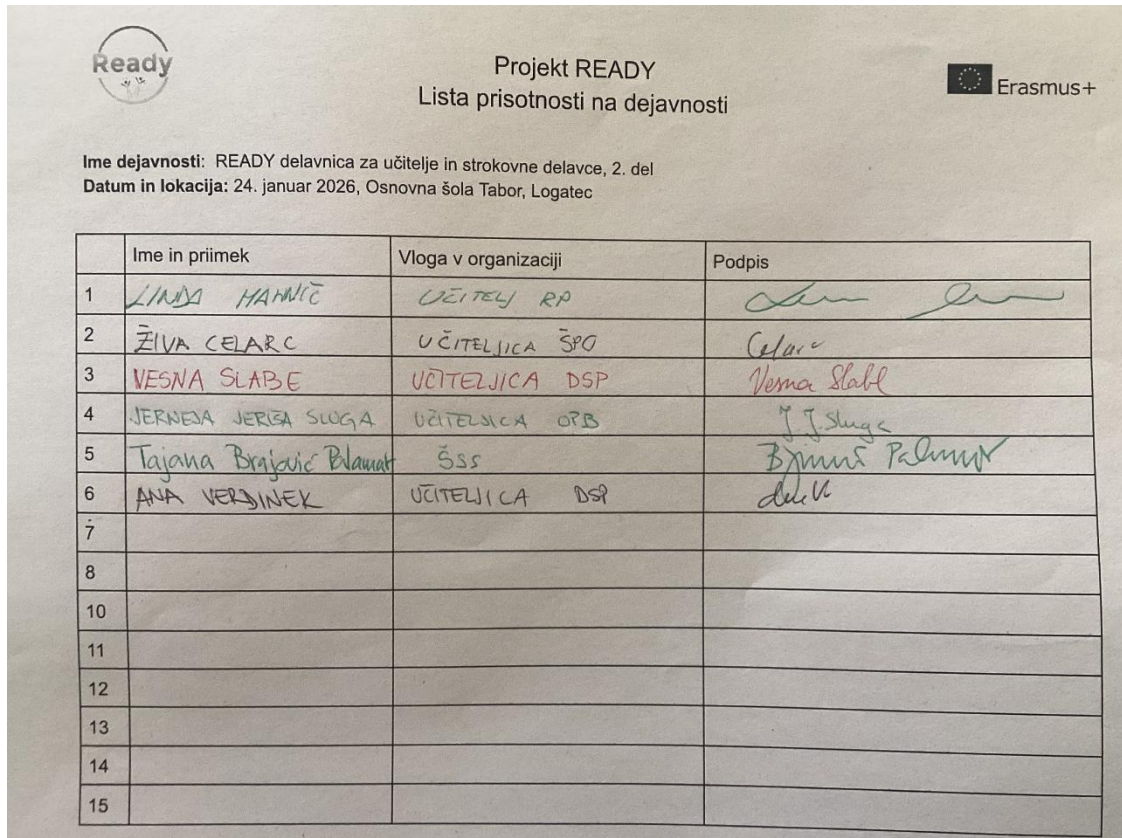 Ready
Projekt READY
Lista prisotnosti na dejavnosti
Erasmus+
Ime dejavnosti: READY delavnica za učitelje in strokovne delavce, 2. del
Datum in lokacija: 24. januar 2026, Osnovna šola Tabor, Logatec
Ime in priimek Vloga v organizaciji Podpis
1 LINDA UČITELJ RP
2 ŽIVA CELARC UČITELJICA ŠPO Celarc
3 VESNA SLABE UČITELJICA DSP Vesna Slabe
4 JERNEJA JERIŠA SLUGA UČITELJICA OPB J. J. Sluga
5 Tajana Brajović ŠSS
6 ANA VERDINEK UČITELJICA DSP
7
8
10
11
12
13
14
15